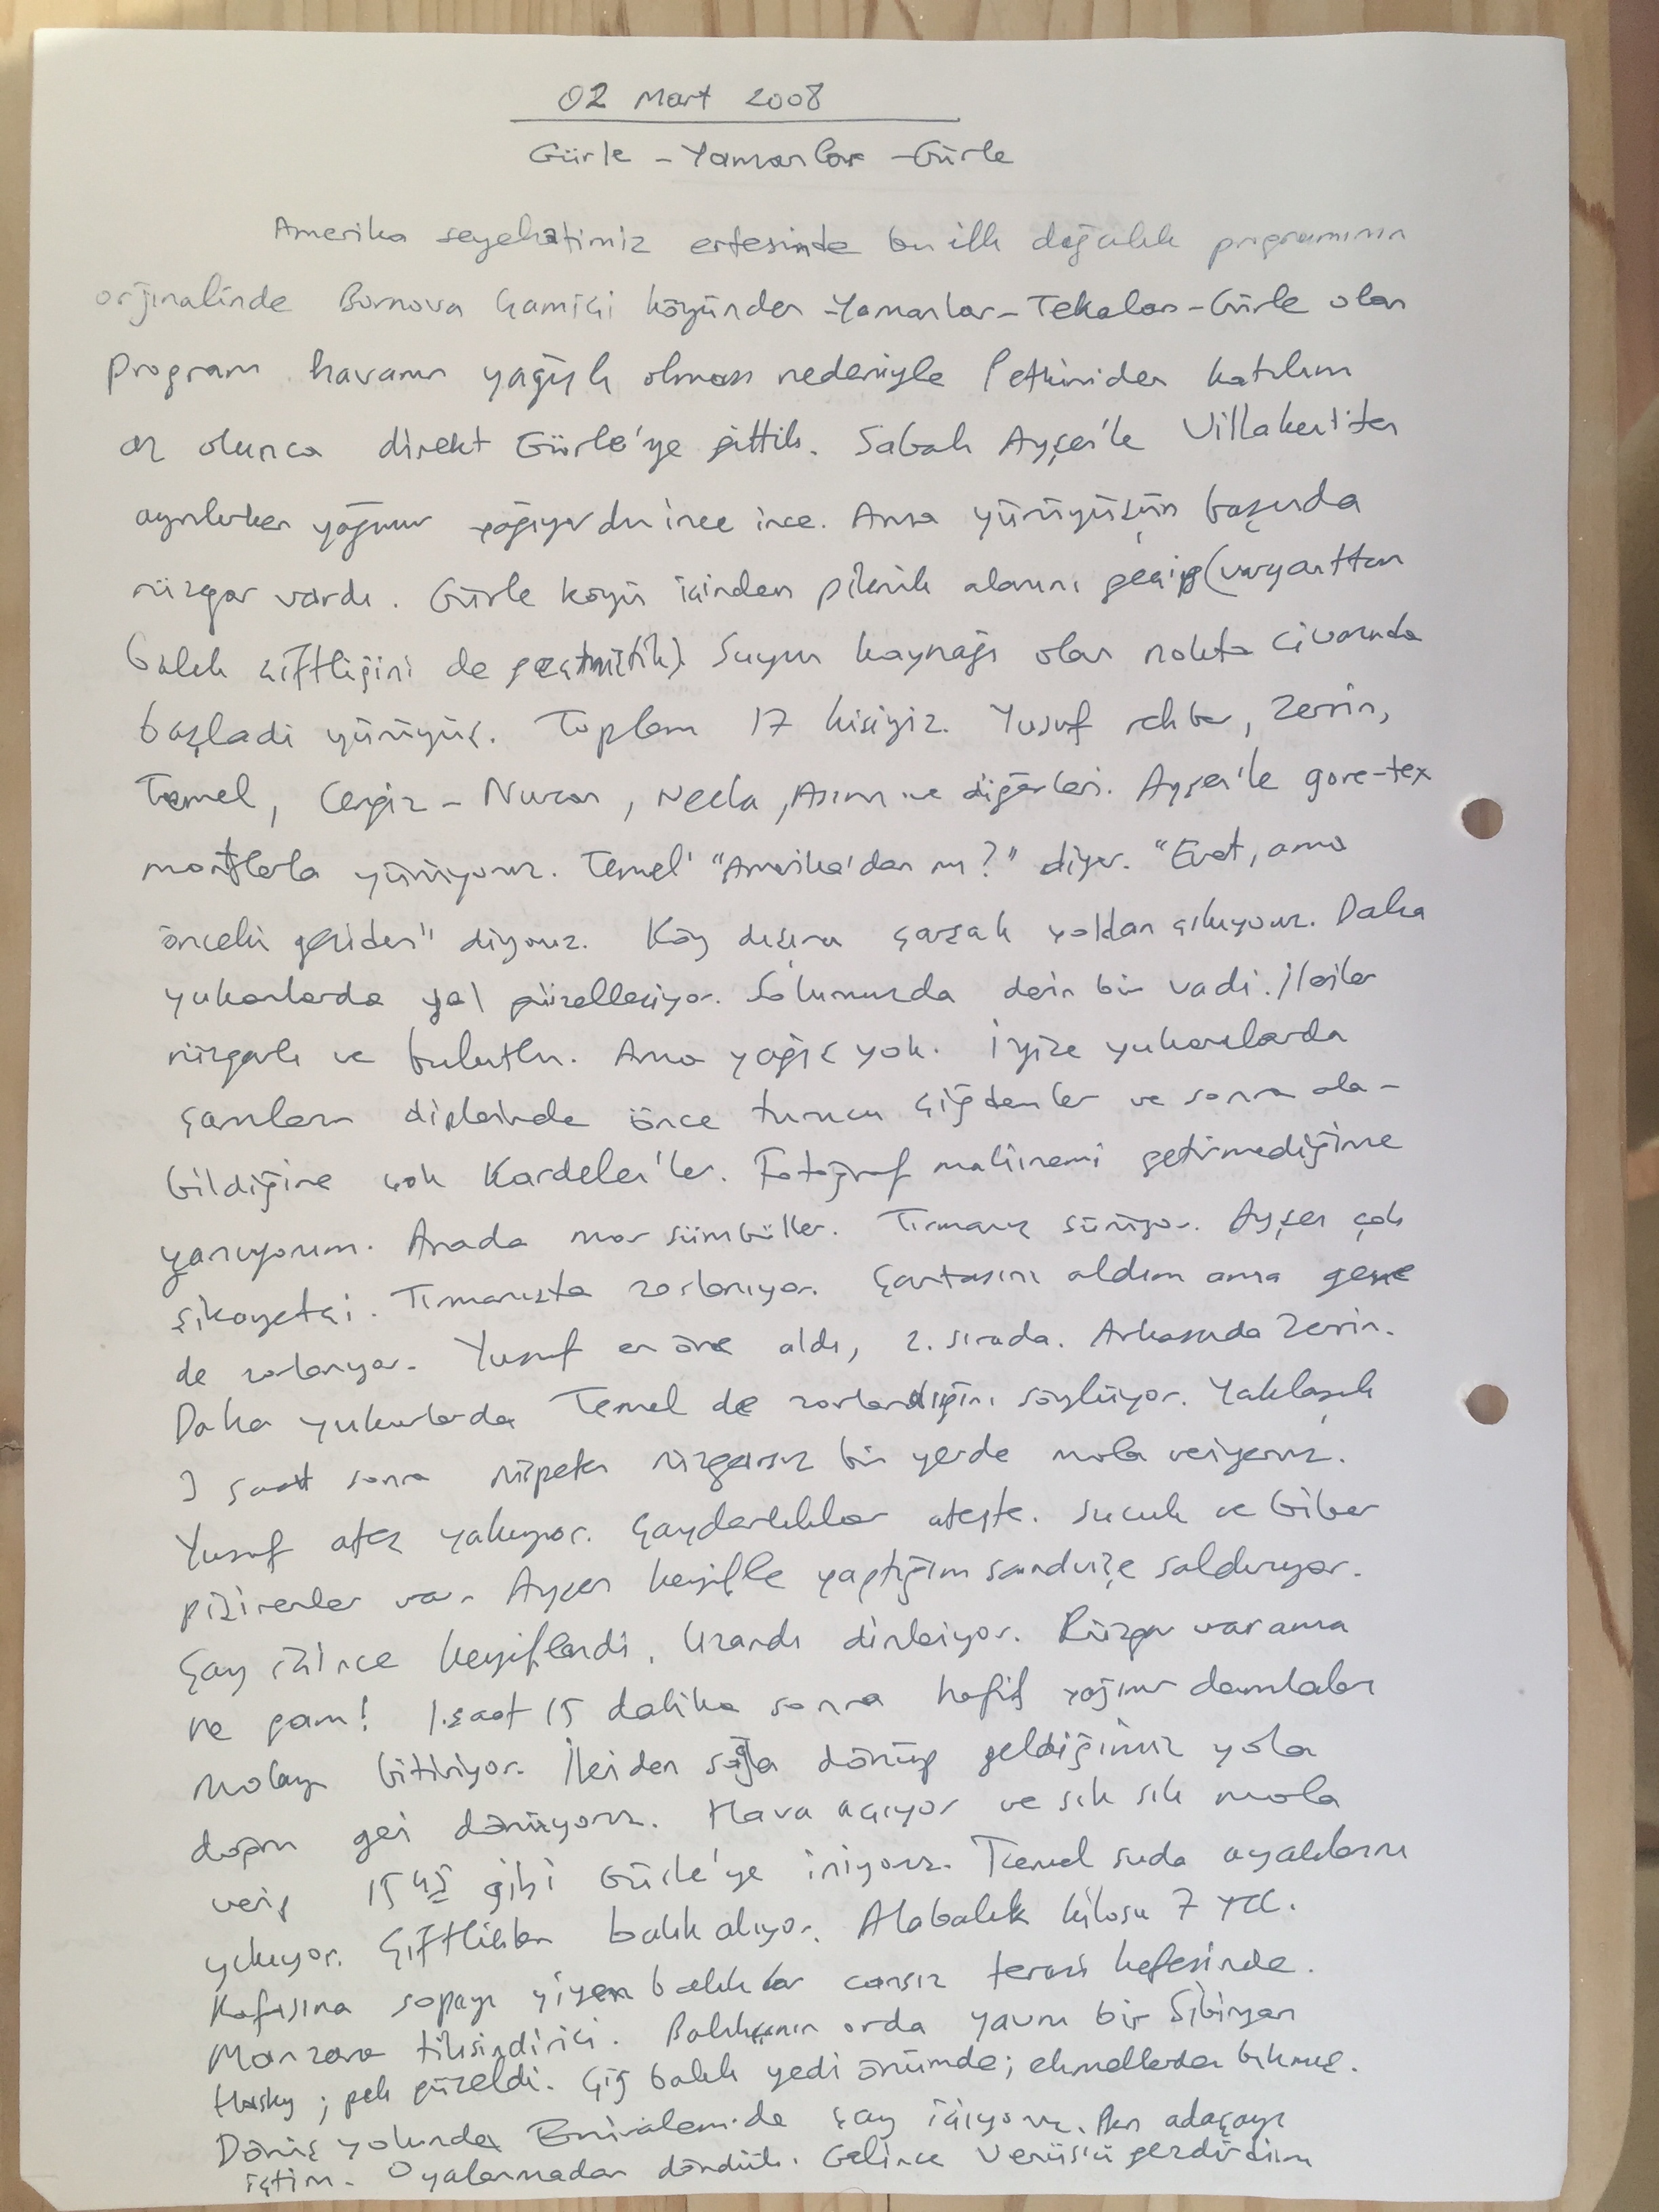 02 Mart 2008
Gürle - Yamanlar - Gürle
Amerika seyehatimiz ertesinde bu ilk doğalık programının
orjinalinde Bornova Çamiçi köyünden - Yamanlar - Tekeler - Gürle olan
Program havanın yağışlı olması nedeniyle katılım
az olunca direkt Gürle'ye gittik. Sabah Ayşen'le Villakent'ten
ayrılırken yağmur yağıyordu ince ince. Ama yürüyüşün başında
rüzgar vardı. Gürle köyü içinden piknik alanını geçip (varyanttan
balık çiftliğini de geçmiştik) Suyun kaynağı olan nokta civarında
başladi yürüyüş. Toplam 17 kişiyiz. Yusuf rehber, Zerrin,
Temel, Cengiz - Nuran, Necla, Asım ve diğerleri. Ayşen'le gore-tex
montlarla yürüyoruz. Temel "Amerika'dan mı?" diyor. "Evet, ama
önceki geziden" diyoruz. Köy dışına çarşak yoldan çıkıyoruz. Daha
yukarılarda yol güzelleşiyor. Solumuzda derin bir vadi. İleriler
rüzgarlı ve bulutlu. Ama yağış yok. İyice yukarılarda
çamların diplerinde önce turuncu çiğdemler ve sonra ala-
bildiğine çok Kardelen'ler. Fotoğraf makinemi getirmediğime
yanıyorum. Arada mor sümbüller. Tırmanış sürüyor. Ayşen çok
şikayetçi. Tırmanışta zorlanıyor. Çantasını aldım ama gene
de zorlanıyor. Yusuf en öne aldı, 2. sırada. Arkasında Zerrin.
Daha yukarılarda Temel de zorlandığını söylüyor. Yaklaşık
3 saat sonra nispeten rüzgarsız bir yerde mola veriyoruz.
Yusuf ateş yakıyor. Çaydanlıklar ateşte. Sucuk ve biber
pişirenler var. Ayşen keyifle yaptığım sandviçe saldırıyor.
Çay içince keyiflendi, uzandı dinleniyor. Rüzgar var ama
ne gam! 1 saat 15 dakika sonra hafif yağmur damlaları
molayı bitiriyor. İleriden sağa dönüp geldiğimiz yola
doğru geri dönüyoruz. Hava açıyor ve sık sık mola
verip 15 45 gibi Gürle'ye iniyoruz. Temel suda ayaklarını
yıkıyor. Çiftlikten balık alıyor. Alabalık kilosu 7 YTL.
Kafasına sopayı yiyen balıklar cansız terazi kefesinde.
Manzara tiksindirici. Balıkçının orda yavru bir Sibiryan
Husky; pek güzeldi. Çiğ balık yedi önümde; ekmeklerden bıkmış.
Dönüş yolunda çay içiyoruz. Ben adaçayı
içtim. Oyalanmadan döndük. Gelince Venüs'ü gezdirdim